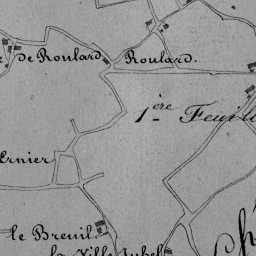 de Roulard Roulard.
1ère Feuill
ernier
le Breuil
la Ville Juhel
Ch